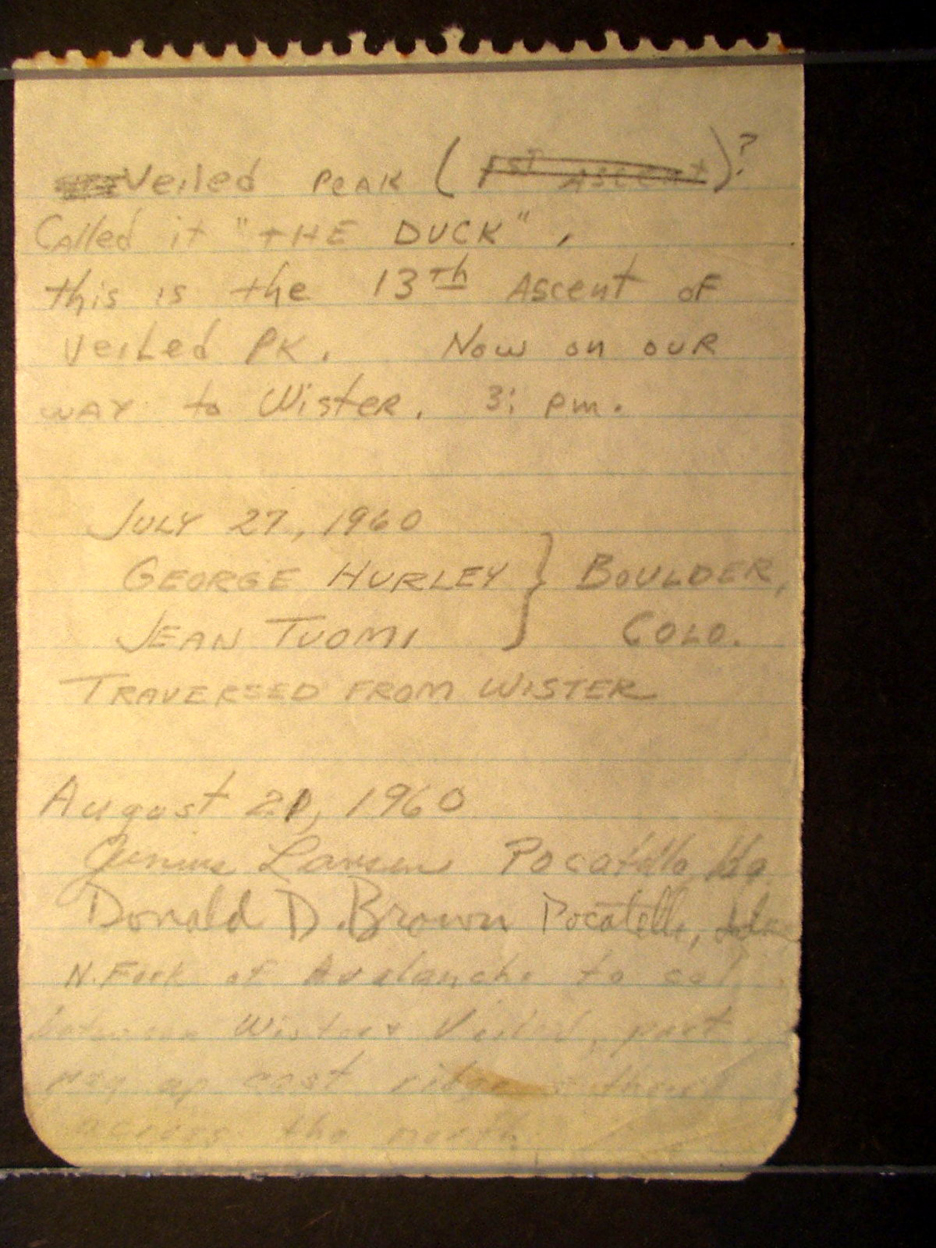 Veiled Peak (1st Ascent)?
Called it "THE DUCK",
this is the 13th Ascent of
Veiled PK. Now on our
way to Wister. 3: pm.
JULY 27, 1960
GEORGE HURLEY } BOULDER,
JEAN TUOMI COLO.
TRAVERSED FROM WISTER
August 21, 1960
Larsen Pocatello, Ida
Donald D. Brown Pocatello, Ida
N. Fork of Avalanche to col
between Wister & Veiled, part
way up east ridge & then
across the north